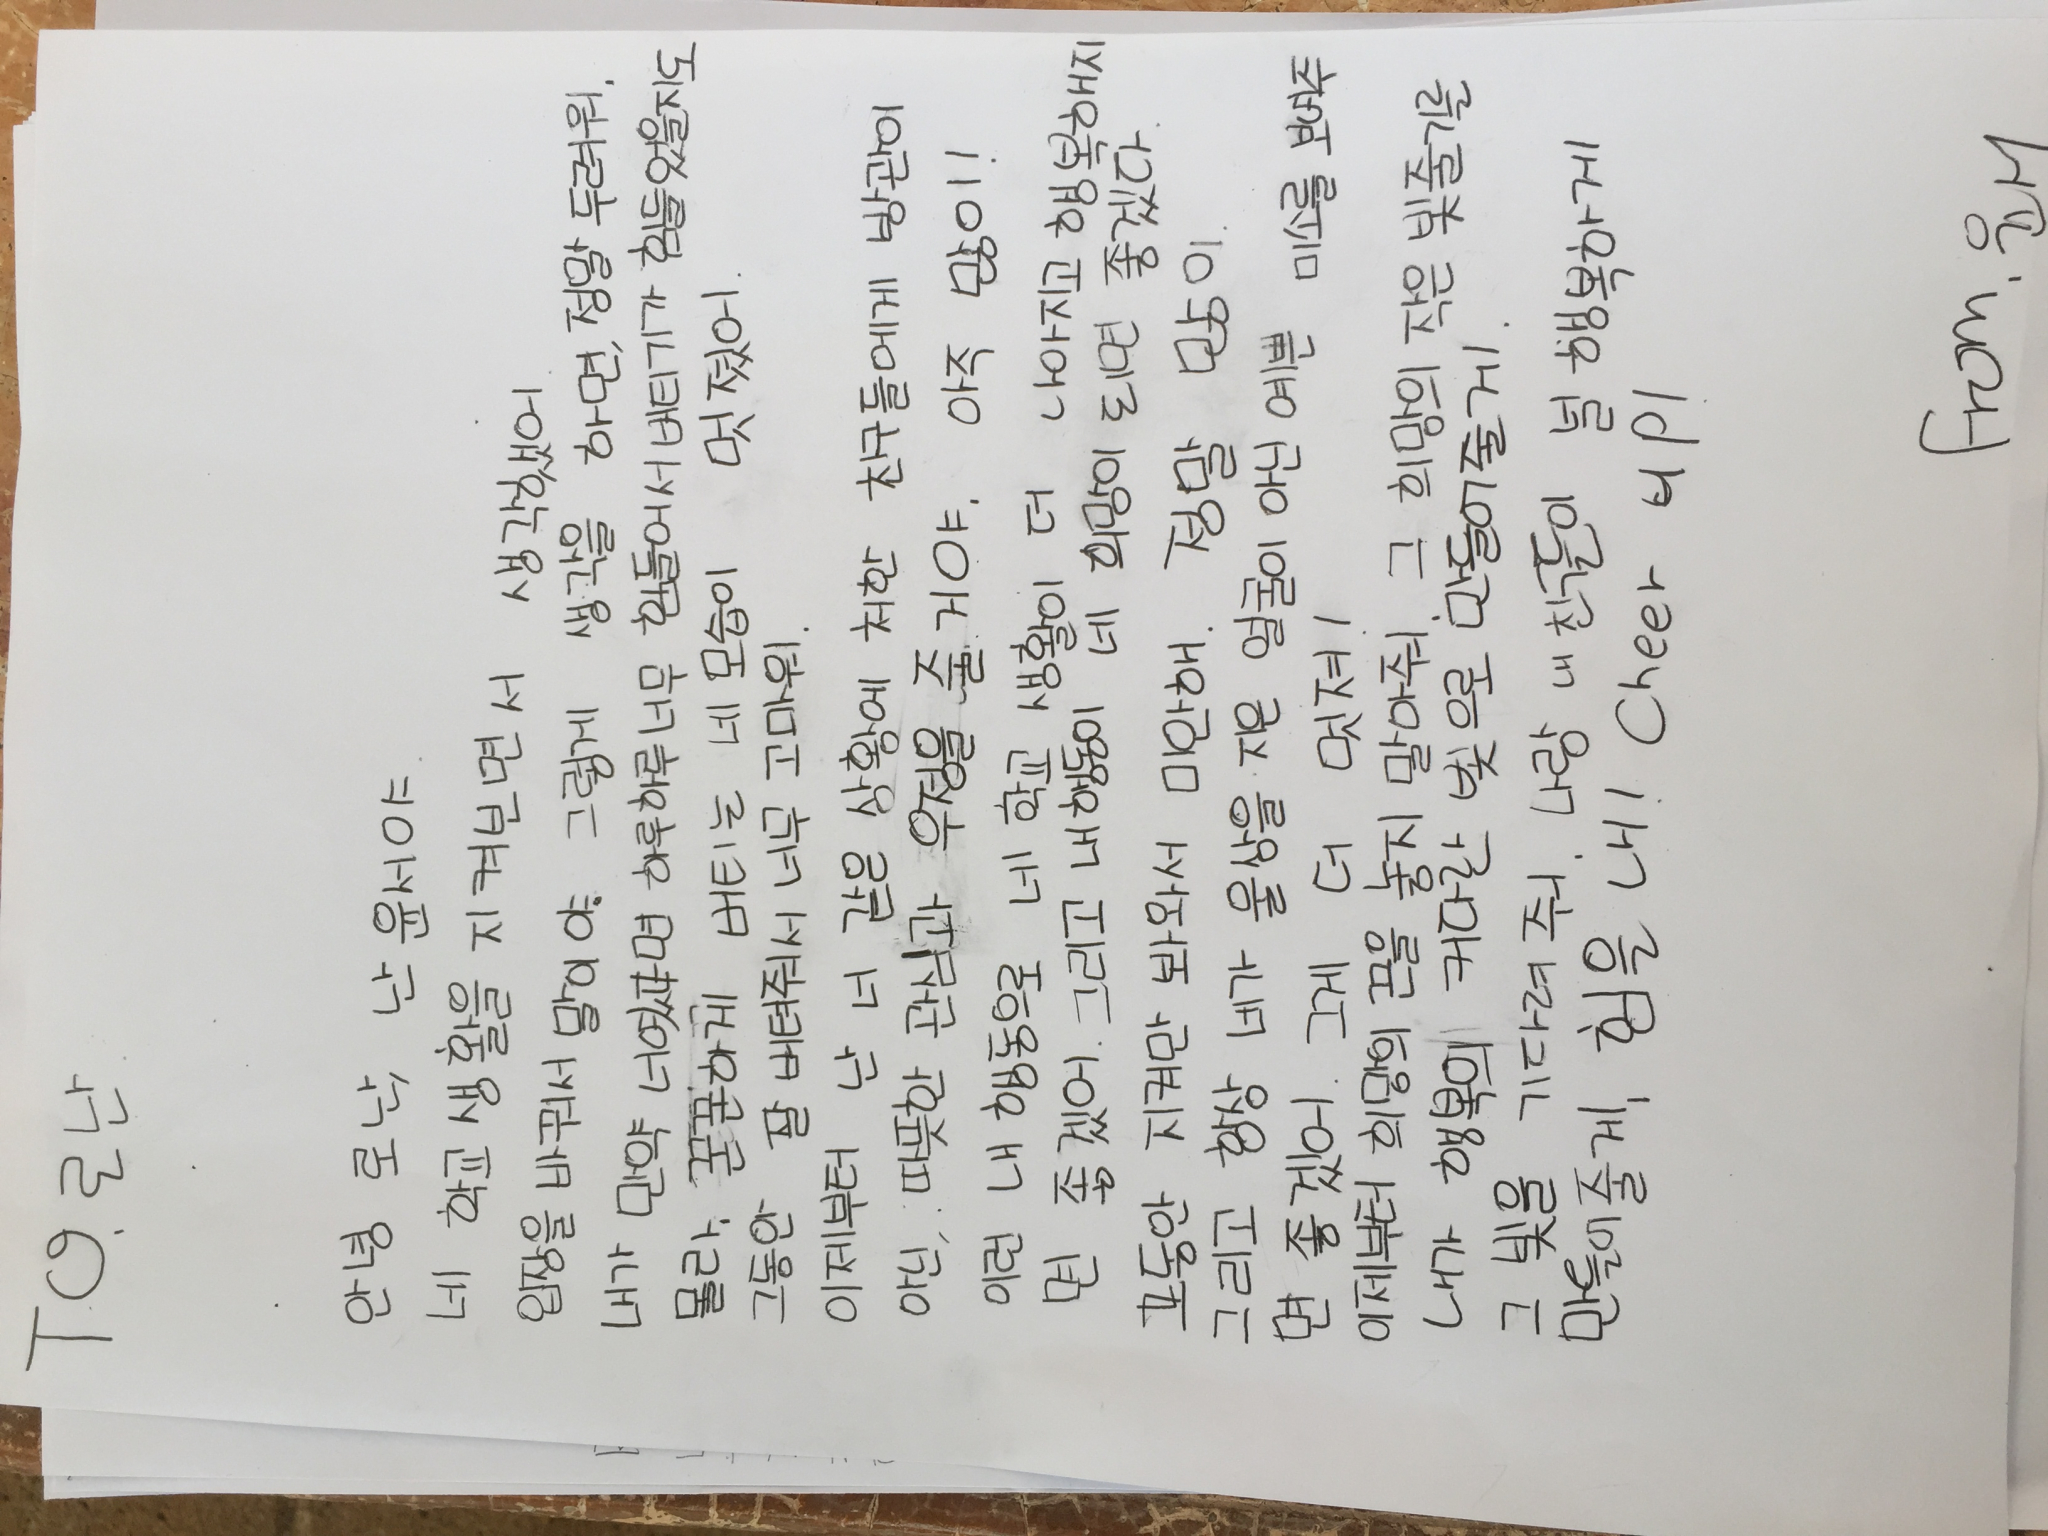 To. 로난
안녕 로난 난 윤서야
네 학교생활을 지켜보면서 생각했어
입장을 바꿔서 말이야. 그렇게 생각을 하면, 정말 두려워.
내가 만약 너였다면 하루하루 너무 힘들어서 버티기가 힘들었을지도
몰라. 꾿꾿하게 버티는 네 모습이 멋졌어.
그동안 잘 버텨줘서 너무 고마워.
이제부터 난 너같은 상황에 처한 친구들에게 방관이
아닌, 따뜻한 관심과 우정을 줄거야. 아주 많이!
이런 내 행동으로 너네 학교 생활이 더 나아지고 행복해지
면 좋겠어. 그리고 내 행동이 너희 힘이 되면 좋겠다.
그동안 지켜만 봐와서 미안해. 정말 많이.
그리고 항상 네가 울상을 지은 얼굴이 아닌 예쁜 미소를 보였으
면 좋겠어. 그게 더 멋져!
이제부터 희망의 끈을 놓지 말아줘. 그 희망의 작은 빛줄기를
내가 행복의 커다란 빛으로 만들어줄게.
그 빛을 기다려줘. 나랑 내 친구들이 널 행복하게
만들어줄게, 힘을 내! Cheer up!
From. 윤서